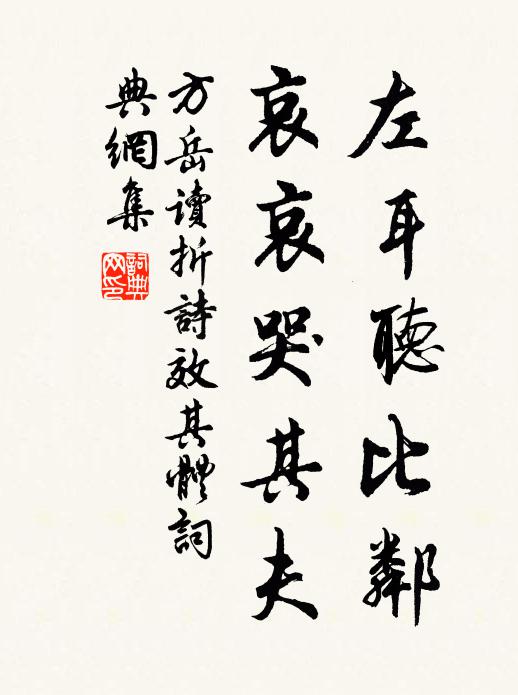 左耳聽比鄰
哀哀哭其夫
方岳讀折詩效其體詞
典網集
詞典网印